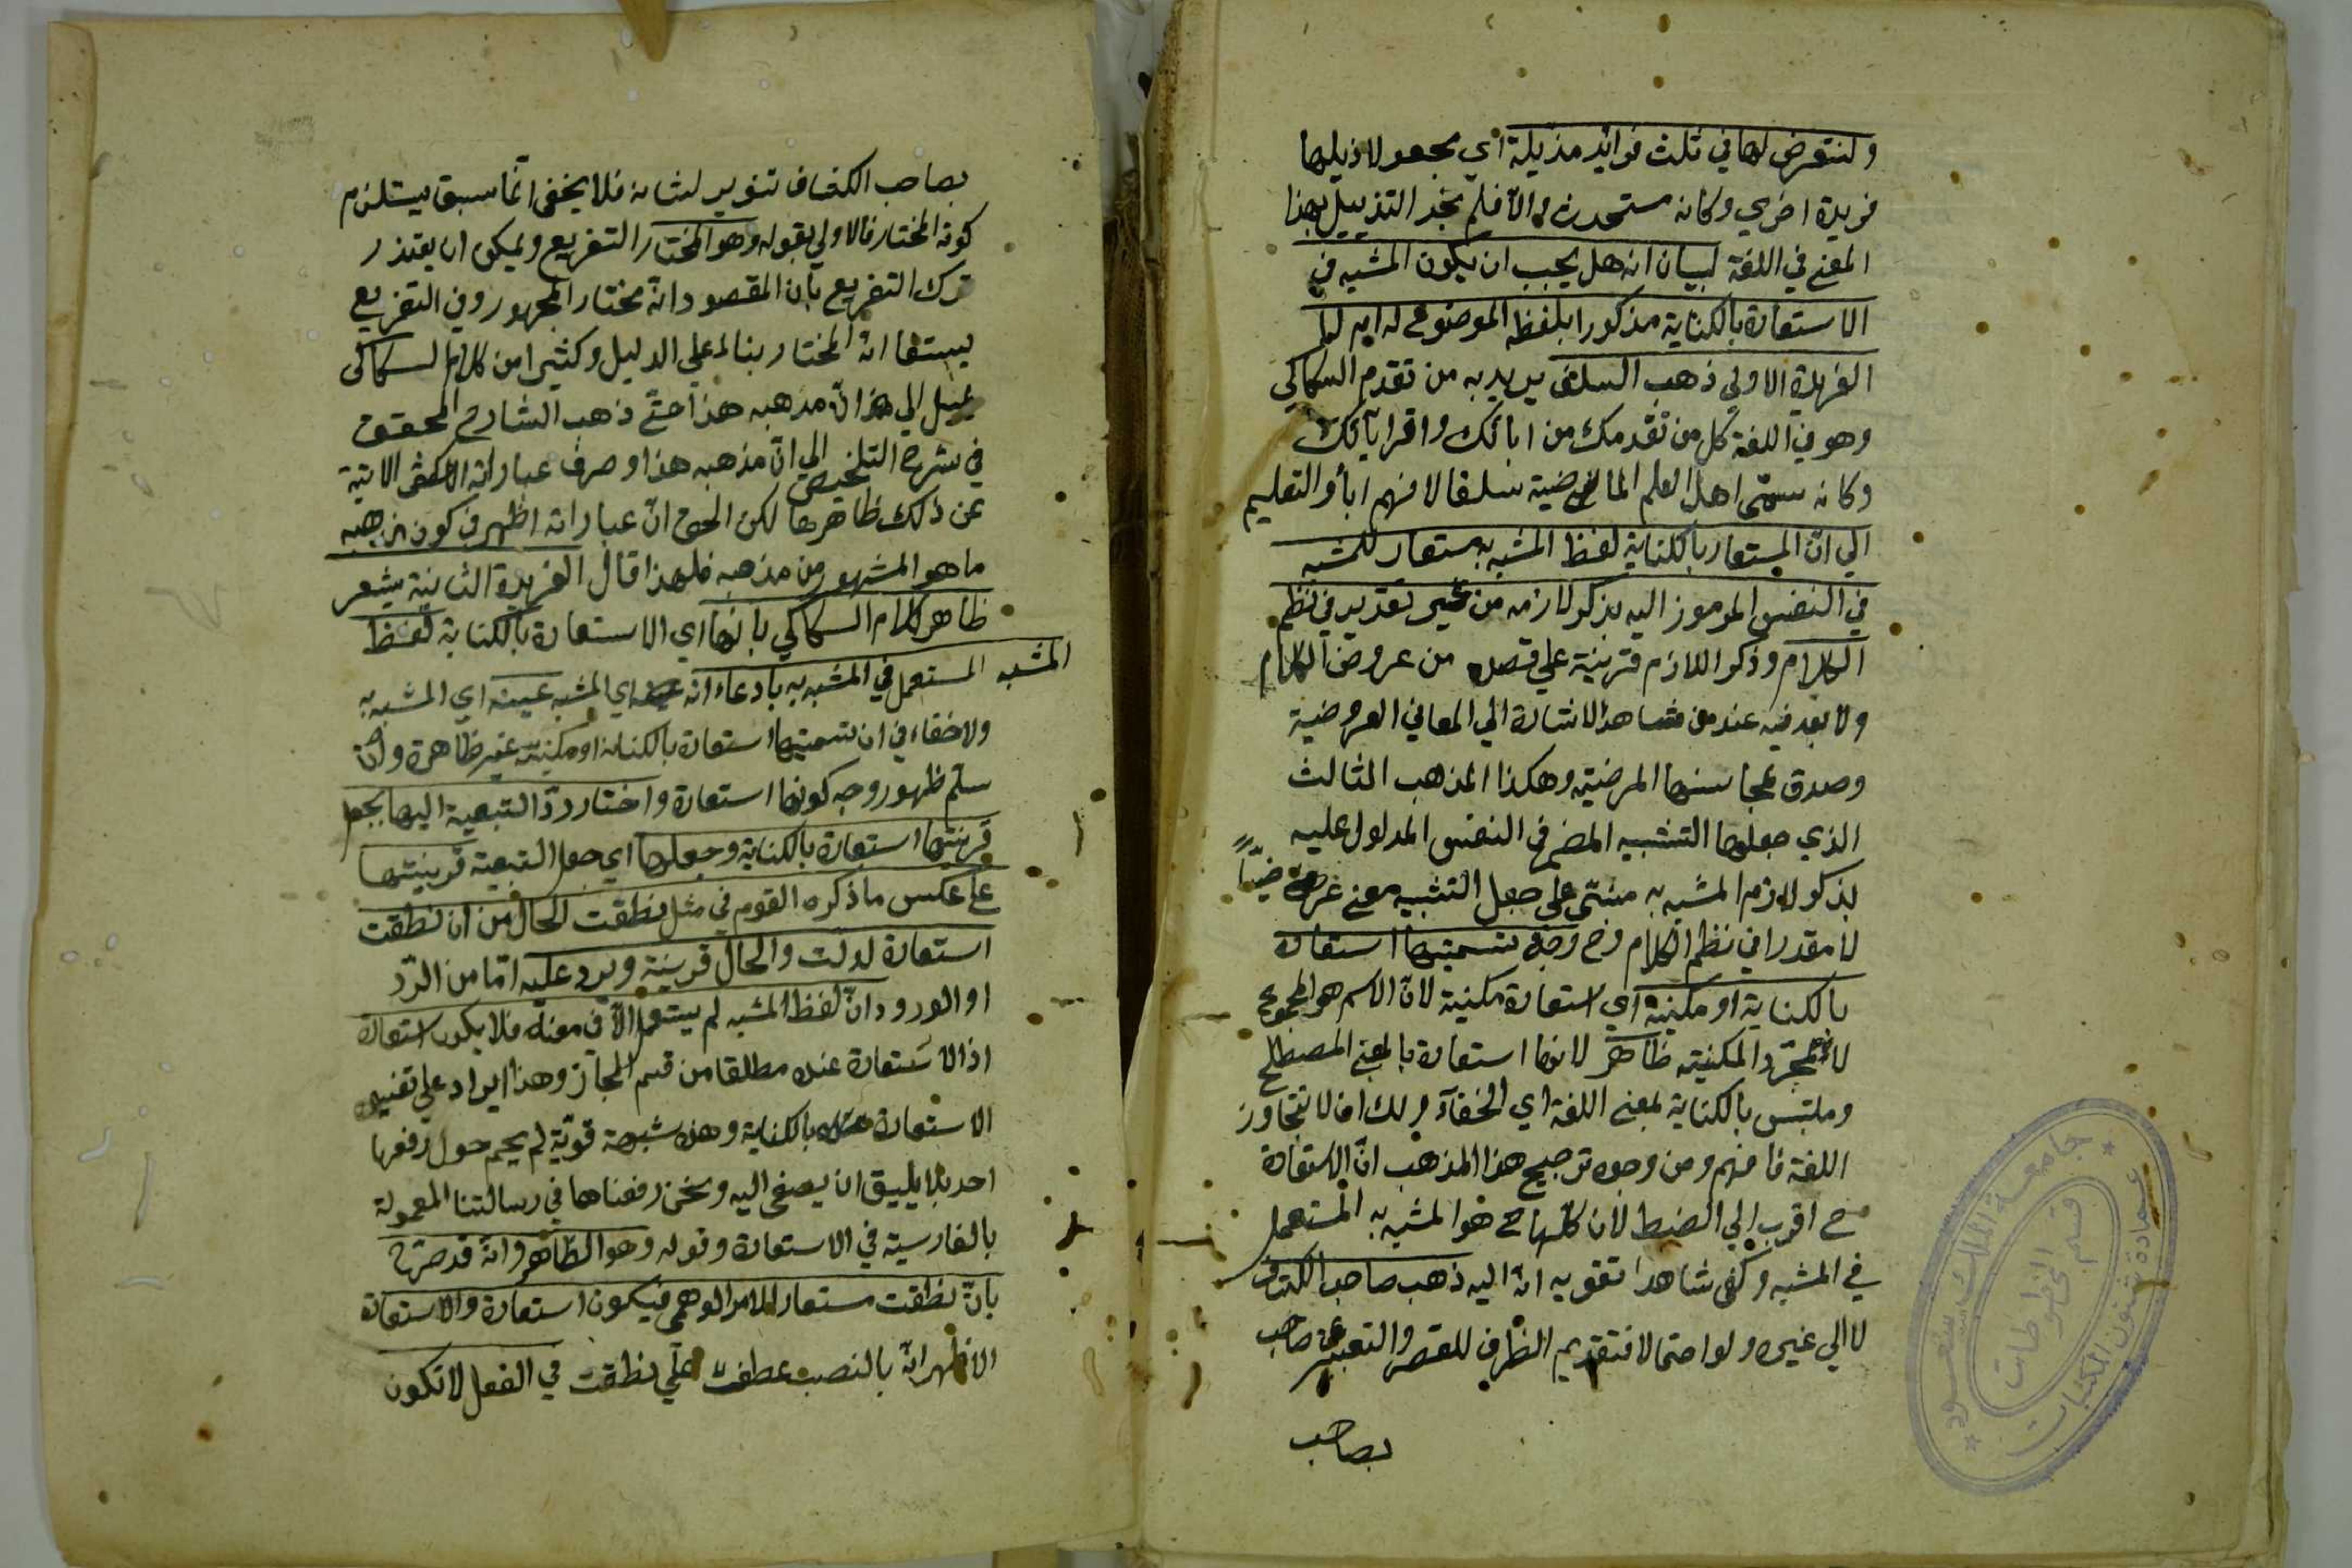 ولنتعرض لها في ثلث فرائد مذيلة اي مجعولا ذيلها
فريدة اخرى وكانه مستحدث والا فلم نجد التذييل بهذا
المعنى في اللغة لبيان انه هل يجب ان يكون المشبه في
الاستعارة بالكناية مذكورا بلفظ الموضوع له ام لا
الفريدة الاولى ذهب السلف يريد به من تقدم السكاكي
وهو في اللغة كل من تقدمك من ابائك واقرابائك
وكانه سمى اهل العلم الماضية سلفا لانهم اباؤ التعليم
الي ان المستعار بالكناية لفظ المشبه به مستعار للمشبه
في النفس المرموز اليه بذكر لازمه من غير تقدير في نظم
الكلام وذكر اللازم قرينة على قصده من عروض الكلام
ولا بعد فيه عند من شاهد الاشارة الي المعاني العروضية
وصدق بمحاسنها المرضية وهكذا المذهب الثالث
الذي جعلها التشبيه المضمر في النفس المدلول عليه
بذكر لازم المشبه به مبني على جعل التشبيه معنى عرضيا
لا مقدرا في نظم الكلام وح وجه تسميتها استعارة
بالكناية او مكنية اي استعارة مكنية لان الاسم هو المجموع
لا مجرد المكنية ظاهر لانها استعارة بالمعنى المصطلح
وملتبس بالكناية بمعنى اللغة اي الخفاء ولك ان لا تتجاوز
اللغة فافهم ومن وجوه ترجيح هذا المذهب ان الاستعارة
ح اقرب الي الضبط لان كلها ح هو المشبه به المستعمل
في المشبه وكفى شاهدا تقويه انه اليه ذهب صاحب الكشاف
لا الي غيره ولو احتمالا فتقديم الظرف للقصر والتعبير عن صاحب
بصاحب
بصاحب الكشاف تنوير لشانه فلا يخفى ان ما سبق يستلزم
كونه المختار فالاولى بقوله وهو المختار التفريع ويمكن ان يعتذر
ترك التفريع بان المقصود انه مختار الجمهور وفي التفريع
يستفا انه المختار بناء على الدليل وكثيرا من كلام السكاكي
يميل الي ان مذهبه هذا حتى ذهب الشارح المحقق
في شرح التلخيص الي ان مذهبه هذا وصرف عباراته الاتية
عن ذلك ظاهرها لكن الحق ان عباراته اظهر في كون مذهبه
ما هو المشهور من مذهبه فلهذا قال الفريدة الثانية يشعر
ظاهر كلام السكاكي بانها اي الاستعارة بالكناية لفظ
المشبه المستعمل في المشبه به بادعاء انه اي المشبه عينه اي المشبه به
ولا خفاء في ان تسميتها استعارة بالكناية او مكنية غير ظاهرة وان
سلم ظهور وجه كونها استعارة واختار رد التبعية اليها بجعل
قرينتها استعارة بالكناية وجعلها اي جعل التبعية قرينتها
على عكس ما ذكره القوم في مثل نطقت الحال من ان نطقت
استعارة لدلت والحال قرينة ويرد عليه اما من الرد
او الورود ان لفظ المشبه لم يستعمل الا في معناه فلا يكون استعارة
اذ الاستعارة عنده مطلقا من قسم المجاز وهذا ايراد على تفسير
الاستعارة بالكناية وهذه شبهة قوية لم يحم حول رفعها
احد بما يليق ان يصغى اليه ونحن رفعناها في رسالتنا المعمولة
بالفارسية في الاستعارة وقوله وهو الظاهر وانه قد صرح
بان نطقت مستعار للامر الوهمي فيكون استعارة والاستعارة
الاظهر انه بالنصب عطف على نطقت في الفعل لا تكون
جامعة الملك سعود
عمادة شئون المكتبات
قسم المخطوطات